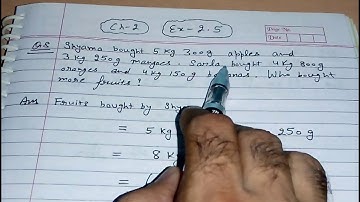 Ch-2 Ex-2.5
Page No.
Date
Q.8 Shyama bought 5 Kg 300g apples and
3 Kg 250g mangoes. Sarla bought 4 Kg 800g
oranges and 4 Kg 150g bananas. Who bought
more fruits?
Ans Fruits bought by
= 5 Kg 250g
= 8 Kg
= (